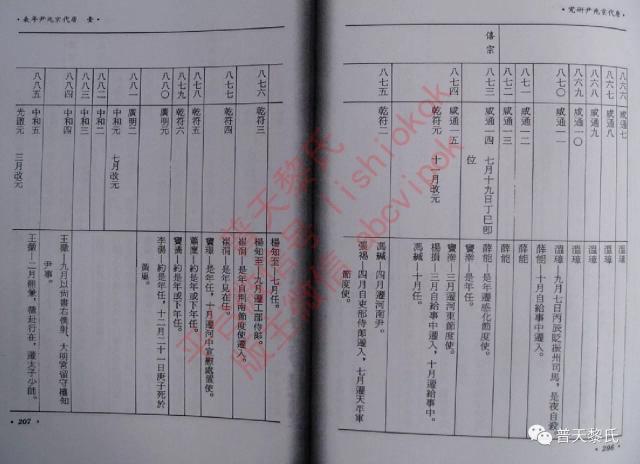 唐代京兆尹研究
八六六 咸通七 溫璋
八六七 咸通八 溫璋
八六八 咸通九 溫璋
八六九 咸通一〇 溫璋
八七〇 咸通一一 溫璋—九月七日丙辰貶振州司馬，是夜自殺。
薛能—十月自給事中遷。
八七一 咸通一二 薛能
八七二 咸通一三 薛能
僖宗
八七三 咸通一四 七月十九日丁巳即位
薛能—是年遷感化節度使。
竇澣—是年任。
八七四 咸通一五 竇澣—三月遷河東節度使。
乾符元 十一月改元 楊損—三月自給事中遷入，十月遷給事中。
馮緘—十月任。
八七五 乾符二 馮緘—四月遷河南尹。
張裼—四月自吏部侍郎遷入，七月遷天平軍
節度使。
壹 唐代京兆尹年表
楊知至—七月任。
八七六 乾符三 楊知至—九月遷工部侍郎。
八七七 乾符四 崔涓—是年自荊南節度使遷入。
崔涓—是年見在任。
八七八 乾符五 竇璟—是年任，十月遷河中宣慰處置使。
八七九 乾符六 蕭廩—約是年或下年任。
八八〇 廣明元 竇潏—約是年或下年任。
李湯—約是年任，十二月二十一日庚子死於
黃巢。
八八一 廣明二
中和元 七月改元
八八二 中和二
八八三 中和三
八八四 中和四 王徽—九月以尚書右僕射、大明宮留守權知
尹事。
八八五 中和五 王徽—二月
光啟元 三月改元
207
普天黎氏
lishiokok
abcvipok
普天黎氏